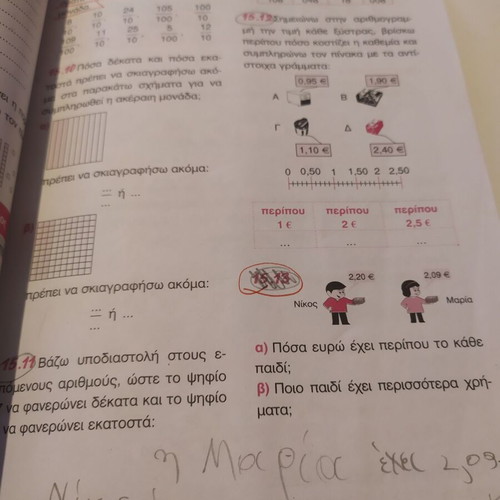 10 24 105 100
10 100 10
11 25 5 12
10 100 10
15.10 Πόσα δέκατα και πόσα εκα-
τοστά πρέπει να σκιαγραφήσω ακό-
μα στα παρακάτω σχήματα για να
συμπληρωθεί η ακέραιη μονάδα;
πρέπει να σκιαγραφήσω ακόμα:
... ή ...
...
β)
πρέπει να σκιαγραφήσω ακόμα:
... ή ...
...
15.11 Βάζω υποδιαστολή στους ε-
πόμενους αριθμούς, ώστε το ψηφίο
να φανερώνει δέκατα και το ψηφίο
να φανερώνει εκατοστά:
15.12 Σημειώνω στην αριθμογραμ-
μή την τιμή κάθε ξύστρας, βρίσκω
περίπου πόσο κοστίζει η καθεμία και
συμπληρώνω τον πίνακα με τα αντί-
στοιχα γράμματα:
0,95 € 1,90 €
Α Β
Γ Δ
1,10 € 2,40 €
0 0,50 1 1,50 2 2,50
περίπου περίπου περίπου
1 € 2 € 2,5 €
... ... ...
15.13
2,20 € 2,09 €
Νίκος Μαρία
α) Πόσα ευρώ έχει περίπου το κάθε
παιδί;
β) Ποιο παιδί έχει περισσότερα χρή-
ματα;
η Μαρία έχει 2,09